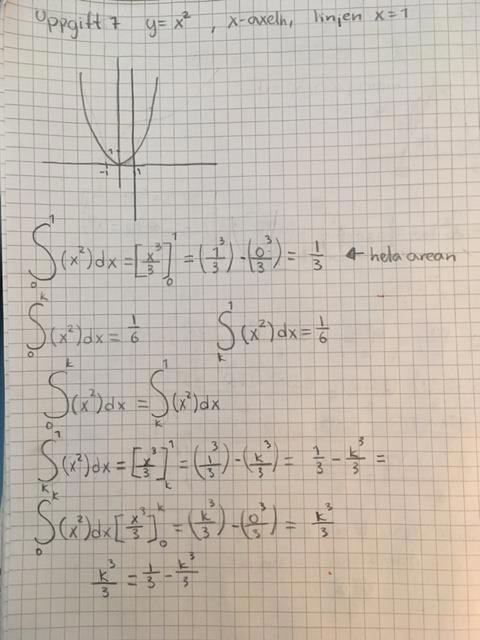 Uppgift 7 y=x², x-axeln, linjen x=1
1
-1 1
∫₀¹(x²)dx=[x³/3]₀¹=(1³/3)-(0³/3)=1/3 ← hela arean
∫₀ᵏ(x²)dx=1/6 ∫ₖ¹(x²)dx=1/6
∫₀ᵏ(x²)dx=∫ₖ¹(x²)dx
∫ₖ¹(x²)dx=[x³/3]ₖ¹=(1³/3)-(k³/3)=1/3-k³/3=
∫₀ᵏ(x²)dx[x³/3]₀ᵏ=(k³/3)-(0³/3)=k³/3
k³/3=1/3-k³/3